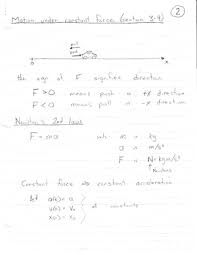 Motion under constant force (section 3.4)
2
the sign of F signifies direction
F > 0 means push in +x direction
F < 0 means pull in -x direction
Newton's 2nd laws
F = ma with m in kg
a in m/s²
F in N = kg m/s²
Newtons
Constant force ⇒ constant acceleration
let a(t) = a
v(0) = V₀
x(0) = X₀
constants